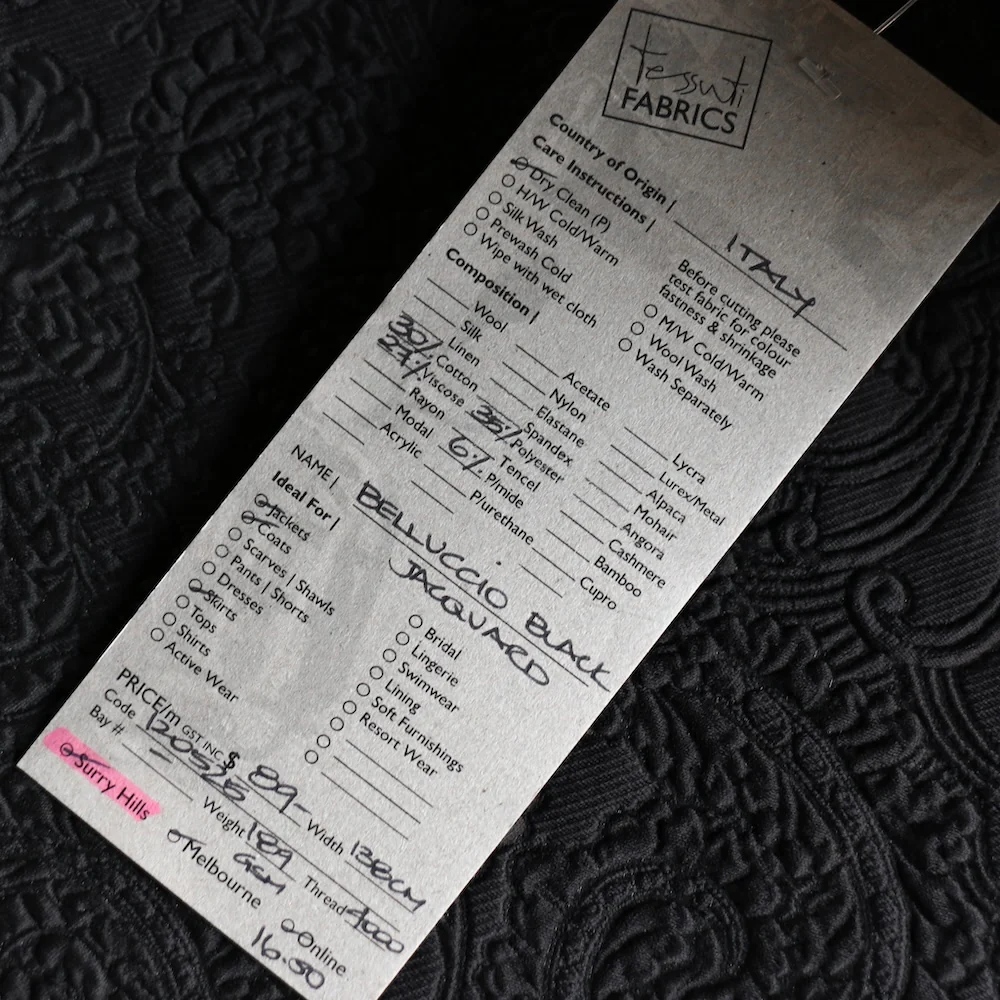 tessuti
FABRICS
Country of Origin | ITALY
Care Instructions |
Dry Clean (P)
H/W Cold/Warm
Silk Wash
Prewash Cold
Wipe with wet cloth
Before cutting please
test fabric for colour
fastness & shrinkage
M/W Cold/Warm
Wool Wash
Wash Separately
Composition |
Wool
Silk
Linen
30% Cotton
24% Viscose
Rayon
Modal
Acrylic
Acetate
Nylon
Elastane
Spandex
35% Polyester
Tencel
6% P/mide
P/urethane
Lycra
Lurex/Metal
Alpaca
Mohair
Angora
Cashmere
Bamboo
Cupro
NAME | BELLUCCIO BLACK
JACQUARD
Ideal For |
Jackets
Coats
Scarves | Shawls
Pants | Shorts
Dresses
Skirts
Tops
Shirts
Active Wear
Bridal
Lingerie
Swimwear
Lining
Soft Furnishings
Resort Wear
PRICE/m GST INC $ 89-
Code Width 138CM
Bay # Weight GSM Thread 4000
Surry Hills
Melbourne
Online
16.50